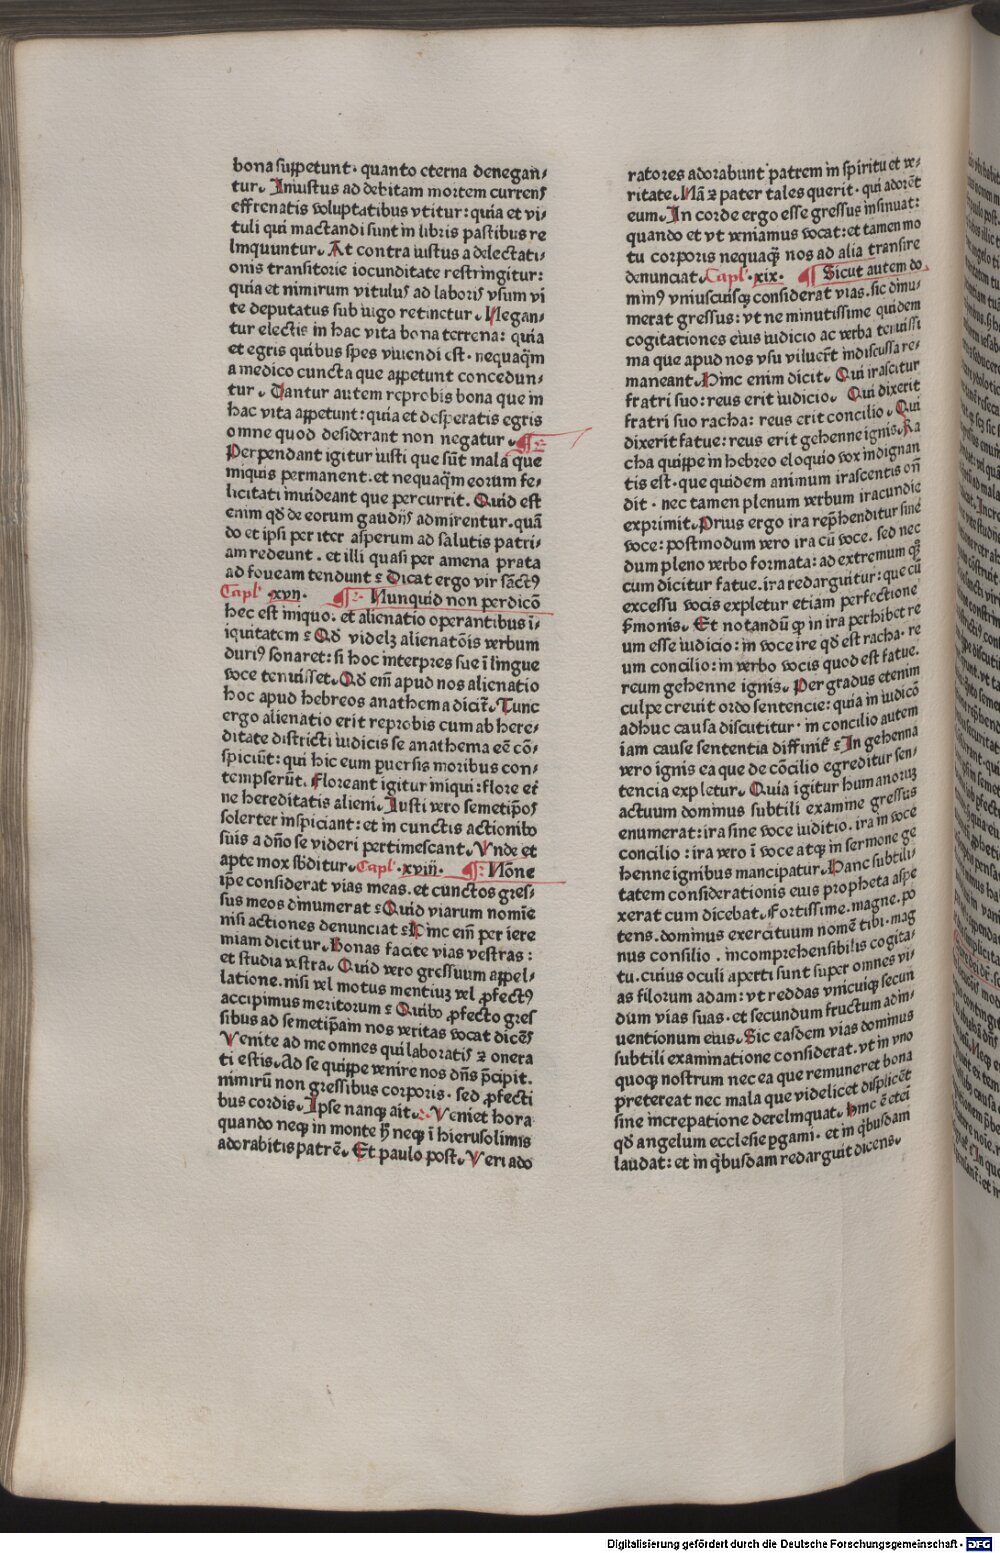 bona suppetunt · quanto eterna denegan⸗
tur. Iniustus ad debitam mortem currens
effrenatis voluptatibus vtitur: quia et vi⸗
tuli qui mactandi sunt in libris pastibus re
linquuntur. At contra iustus a delectati⸗
onis transitorie iocunditate restringitur:
quia et nimirum vitulus ad laboris vsum vi
te deputatus sub iugo retinetur. Negan⸗
tur electis in hac vita bona terrena: quia
et egris quibus spes viuendi est · nequaq̄m
a medico cuncta que appetunt concedun⸗
tur. Dantur autem reprobis bona que in
hac vita appetunt: quia et desperatis egris
omne quod desiderant non negatur.
Perpendant igitur iusti que sūt mala que
iniquis permanent. et nequaq̄m eorum fe⸗
licitati inuideant que percurrit. Quid est
enim qd̄ de eorum gaudijs admirentur. quā
do et ipsi per iter asperum ad salutis patri⸗
am redeunt. et illi quasi per amena prata
ad foueam tendunt? Dicat ergo vir sāctꝰ
Capl' ·xvij· Nunquid non perdicō
hec est iniquo: et alienatio operantibus ī⸗
iquitatem? Qd̄ videlꝫ alienatōis verbum
duriꝰ sonaret: si hoc interpres sue ī lingue
voce tenuisset. Qd̄ em̄ apud nos alienatio
hoc apud hebreos anathema dicit̄. Tunc
ergo alienatio erit reprobis cum ab here⸗
ditate districti iudicis se anathema eē cō⸗
spiciūt: qui hic eum ꝑuersis moribus con⸗
tempserūt. Floreant igitur iniqui: flore et̄
ne hereditatis alieni. Iusti vero semetip̄os
solerter inspiciant: et in cunctis actionibꝰ
suis a dn̄o se videri pertimescant. Vnde et
apte mox sb̄ditur. Capl' ·xviij· Nōne
ip̄e considerat vias meas. et cunctos gres⸗
sus meos dinumerat? Quid viarum nomīe
nisi actiones denunciat? Hinc em̄ per iere
miam dicitur. Bonas facite vias vestras:
et studia vestra. Quid vero gressuum appel⸗
latione. nisi vel motus mentium vel ꝓfectꝰ
accipimus meritorum? Quibꝰ ꝓfecto gres
sibus ad semetip̄am nos veritas vocat dicēs
Venite ad me omnes qui laboratis ⁊ onera
ti estis. Ad se quippe venire nos dn̄s p̄cipit.
nimirū non gressibus corporis. sed ꝓfecti
bus cordis. Ipse nanq̢ ait. Veniet hora
quando neq̢ in monte h̄ neq̢ ī hierusolimis
adorabitis patrē. Et paulo post. Veri ado
ratores adorabunt patrem in spiritu et ve⸗
ritate. Nā ⁊ pater tales querit · qui adorēt
eum. In corde ergo esse gressus insinuat:
quando et vt veniamus vocat: et tamen mo
tu corporis nequaq̄ nos ad alia transire
denunciat. Capl' ·xix· Sicut autem do⸗
minꝰ vniuscuiusq̢ considerat vias. sic dinu⸗
merat gressus: vt ne minutissime quidem
cogitationes eius iudicio ac verba tenuissi
ma que apud nos vsu viluerūt indiscussa re⸗
maneant. Hinc enim dicit. Qui irascitur
fratri suo: reus erit iudicio. Qui dixerit
fratri suo racha: reus erit concilio. Qui
dixerit fatue: reus erit gehenne ignis. Ra
cha quippe in hebreo eloquio vox indignan
tis est · que quidem animum irascentis on̄
dit · nec tamen plenum verbum iracundie
exprimit. Prius ergo ira rep̄henditur sine
voce: postmodum vero ira cū voce. sed nec
dum pleno verbo formata: ad extremum q̢̄
cum dicitur fatue. ira redarguitur: que cū
excessu vocis expletur etiam perfectione
ẜmonis. Et notandū ꝙ in ira perhibet re
um esse iudicio: in voce ire qd̄ est racha. re
um concilio: in verbo vocis quod est fatue.
reum gehenne ignis. Per gradus etenim
culpe creuit ordo sentencie: quia in iudicō
adhuc causa discutitur · in concilio autem
iam cause sententia diffinit̄? In gehenna
vero ignis ea que de cōcilio egreditur sen⸗
tencia expletur. Quia igitur humanorum
actuum dominus subtili examine gressus
enumerat: ira sine voce iuditio. ira in voce
concilio: ira vero ī voce atq̢ in sermone ge
henne ignibus mancipatur. Hanc subtili⸗
tatem considerationis eius propheta aspe
xerat cum dicebat. Fortissime. magne. po
tens. dominus exercituum nomē tibi. mag
nus consilio. incomprehensibilis cogita⸗
tu. cuius oculi aperti sunt super omnes vi⸗
as filorum adam: vt reddas vnicuiq̢ secun
dum vias suas. et secundum fructum adin⸗
uentionum eius. Sic easdem vias dominus
subtili examinatione considerat. vt in vno
quoq̢ nostrum nec ea que remuneret bona
pretereat nec mala que videlicet displicēt
sine increpatione derelinquat. Hinc ē eteī
qd̄ angelum ecclesie ꝑgami · et in q̇busdam
laudat: et in q̇busdam redarguit dicens.
Digitalisierung gefördert durch die Deutsche Forschungsgemeinschaft - DFG